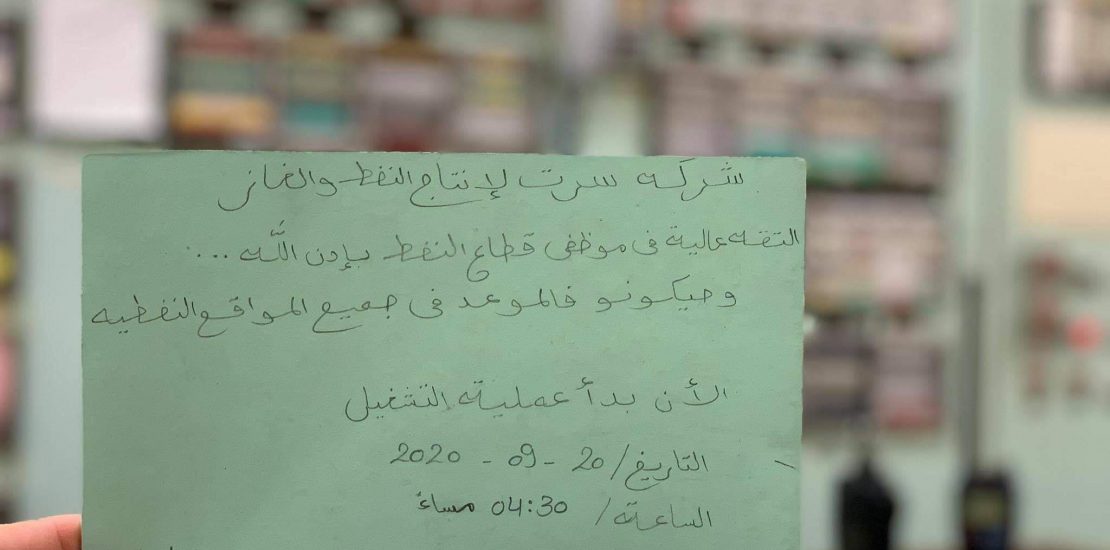 شركه سرت لإنتاج النفط والغاز
الثقه عالية فى موظفى قطاع النفط بإذن اللّه ...
وحيكونو فالموعد فى جميع المواقع النفطيه
الأن بدأ عملية التشغيل
التاريخ / 20 - 09 - 2020
الساعة / 04:30 مساءً